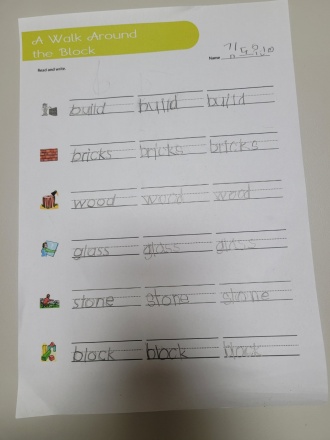 A Walk Around
the Block
Name
Read and write.
build build build
bricks bricks bricks
wood wood wood
glass glass glass
stone stone stone
block block block